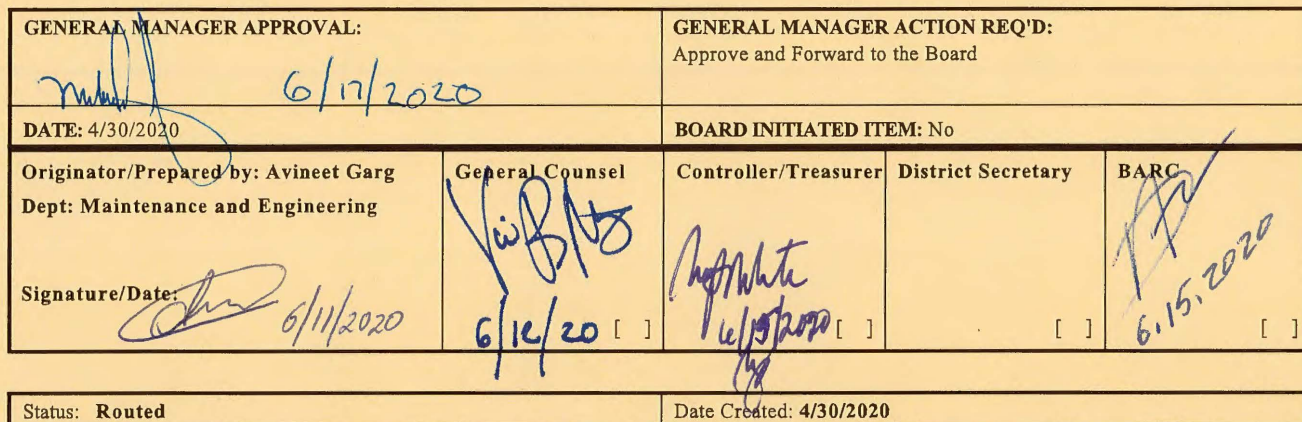 GENERAL MANAGER APPROVAL:
6/17/2020
GENERAL MANAGER ACTION REQ'D:
Approve and Forward to the Board
DATE: 4/30/2020
BOARD INITIATED ITEM: No
Originator/Prepared by: Avineet Garg
Dept: Maintenance and Engineering
Signature/Date:
6/11/2020
General Counsel
6/12/20 [ ]
Controller/Treasurer
[ ]
District Secretary
[ ]
BARC
6.15.2020
[ ]
Status: Routed
Date Created: 4/30/2020